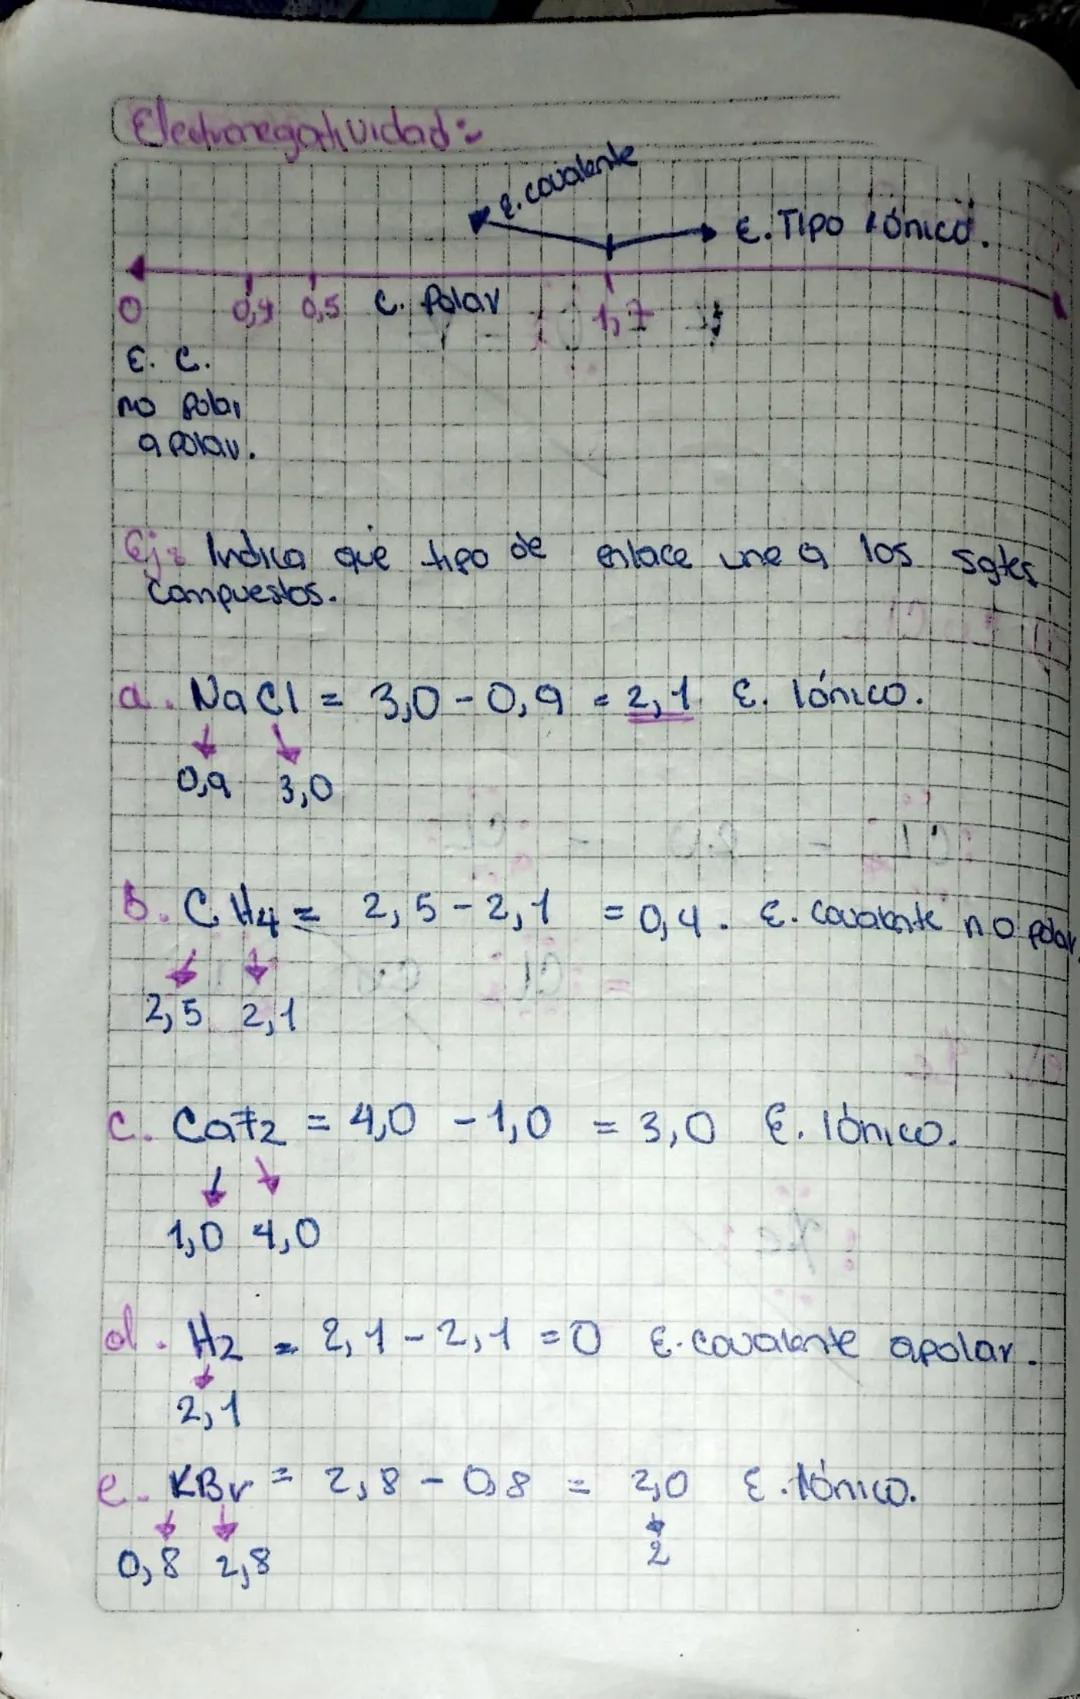 Electronegatividad:
E. covalente
E. Tipo iónico.
0 0,4 0,5 C. Polar 1,7
E. C.
no polar
apolar.
Ej: Indica que tipo de enlace une a los sgtes
compuestos.
a. NaCl = 3,0 - 0,9 = 2,1 E. Iónico.
0,9 3,0
b. CH4 = 2,5 - 2,1 = 0,4. E. covalente no polar.
2,5 2,1
c. CaF2 = 4,0 - 1,0 = 3,0 E. Iónico.
1,0 4,0
d. H2 = 2,1 - 2,1 = 0 E. covalente apolar.
2,1
e. KBr = 2,8 - 0,8 = 2,0 E. Iónico.
0,8 2,8 2